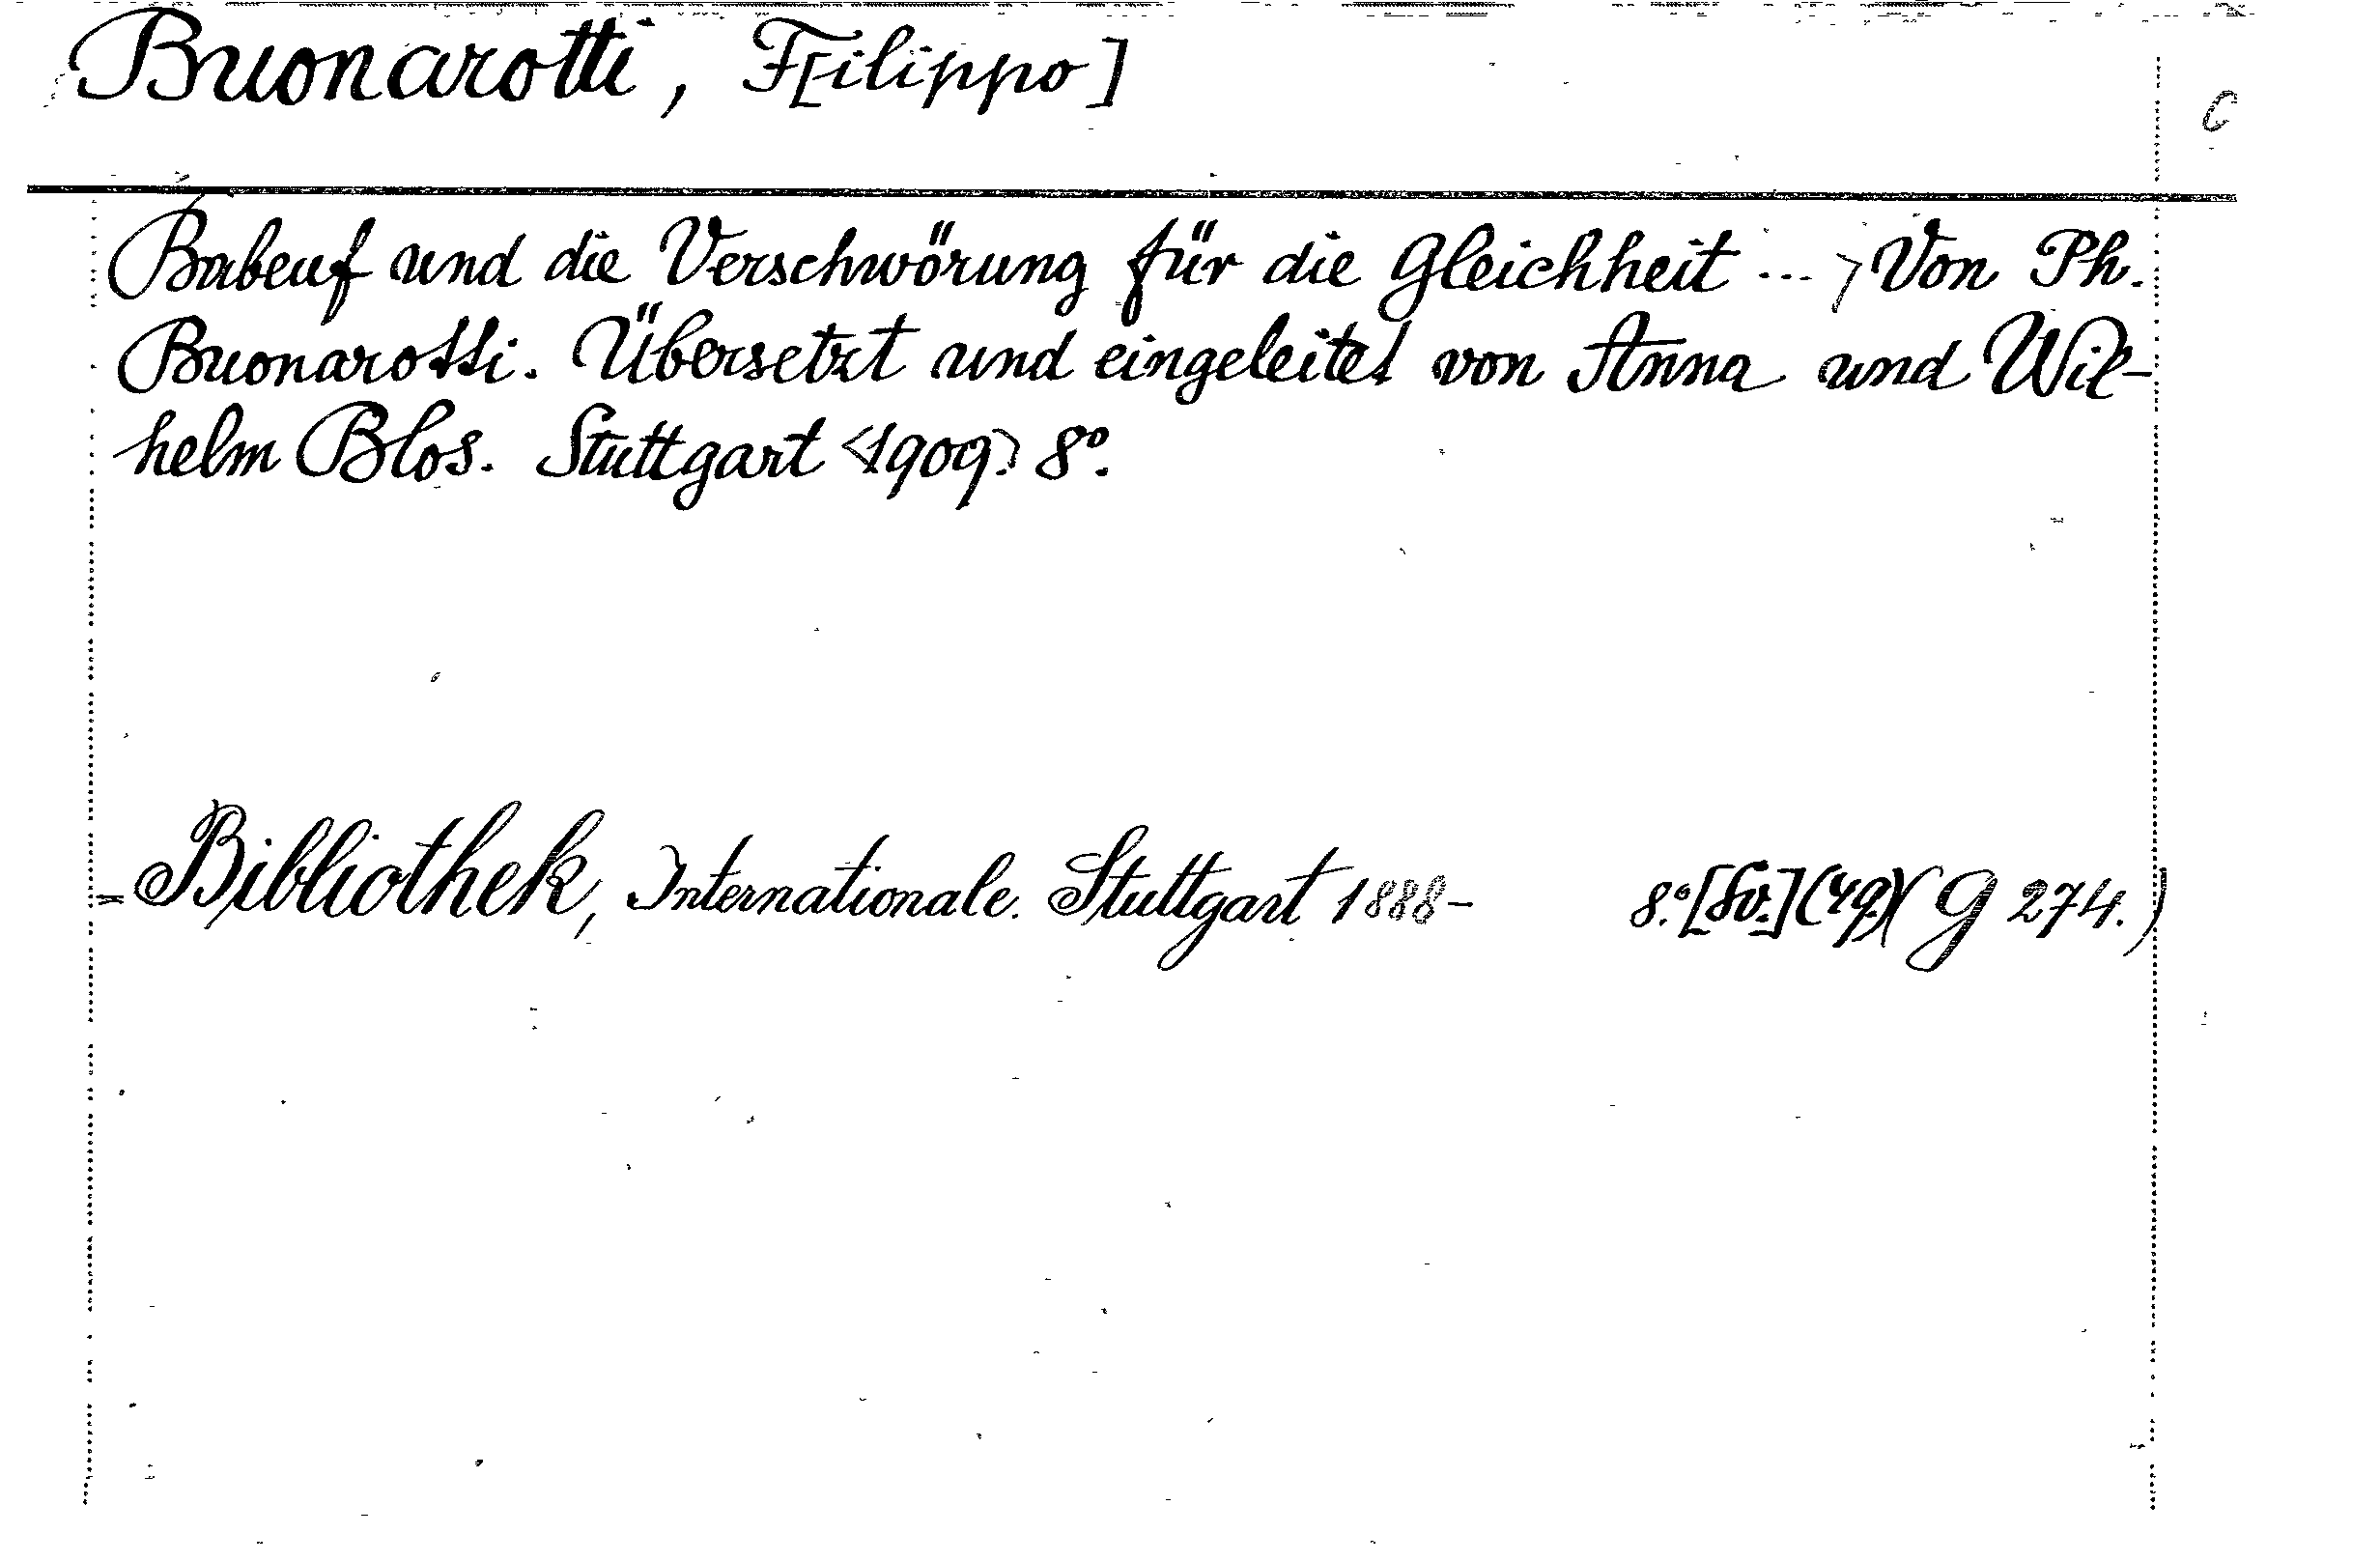 Buonarotti, F[ilippo]
C
Babeuf und die Verschwörung für die Gleichheit ... , Von Ph.
Buonarotti. Übersetzt und eingeleitet von Anna und Wil-
helm Blos. Stuttgart <1909.> 8°.
= Bibliothek, Internationale. Stuttgart 1888- 8.° (49.) (G 274.)